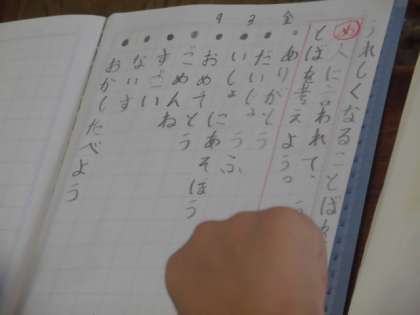 うれしくなることば
め 人に言われて、
とばを考えよう。
・ありがとう
・だいじょうぶ
・いっしょにあそぼう
・おめでとう
・ごめんね
・すごい
・ないす
・おかしたべよう
金
3
4